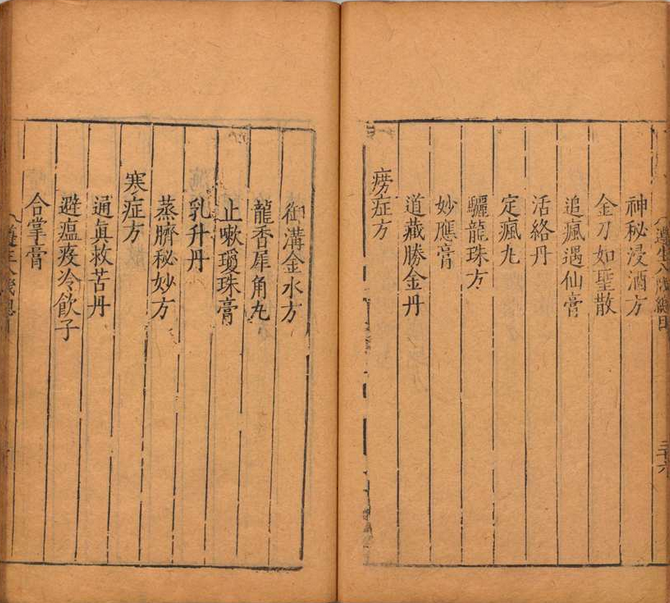 神秘浸酒方
金刀如聖散
追瘋遇仙膏
活絡丹
定瘋丸
驪龍珠方
妙應膏
道藏勝金丹
痨症方
御溝金水方
龍香犀角丸
止嗽瓊珠膏
乳升丹
蒸臍秘妙方
寒症方
通眞救苦丹
避瘟疫冷飲子
合掌膏